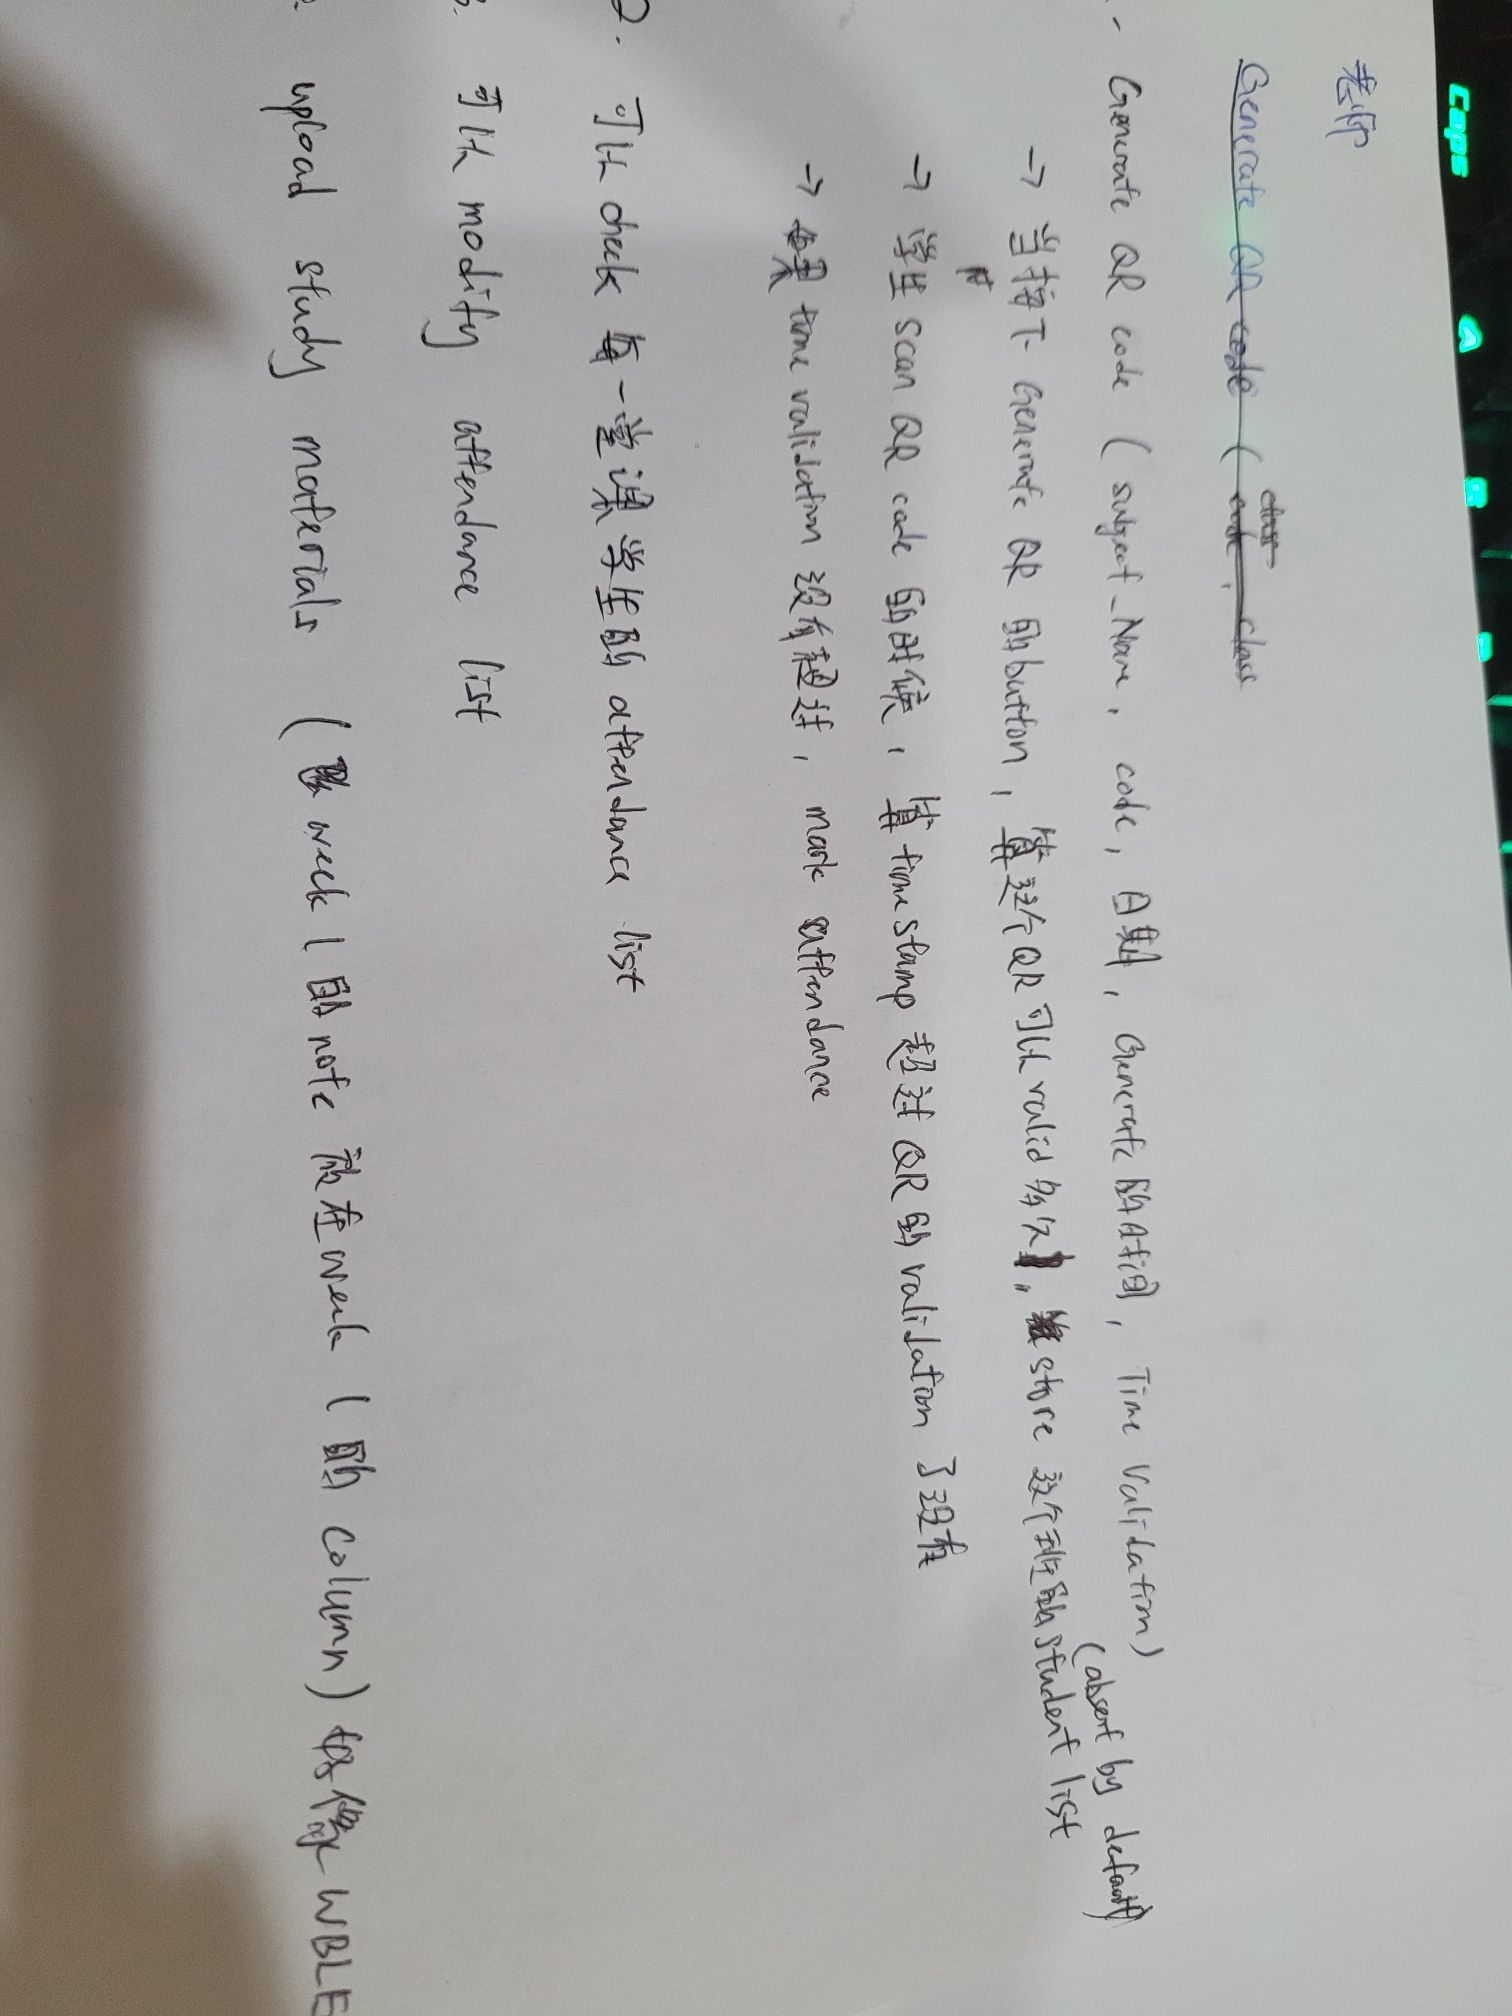 Caps A S D
老师
Generate QR code ( class
code, class
- Generate QR code ( subject_Name, code, 日期, Generate 的时间, Time Validation)
(absent by default)
→ 当按下 Generate QR 的 button, 算这个 QR 可以 valid 多久, store 这个班的 student list
→ 学生 scan QR code 的时候, 算 timestamp 超过 QR 的 validation 了没有
→ 如果 time validation 没有超过, mark attendance
2. 可以 check 每一堂课学生的 attendance list
3. 可以 modify attendance list
upload study materials ( week 1 的 note 放在 week 1 的 column) 好像 WBLE